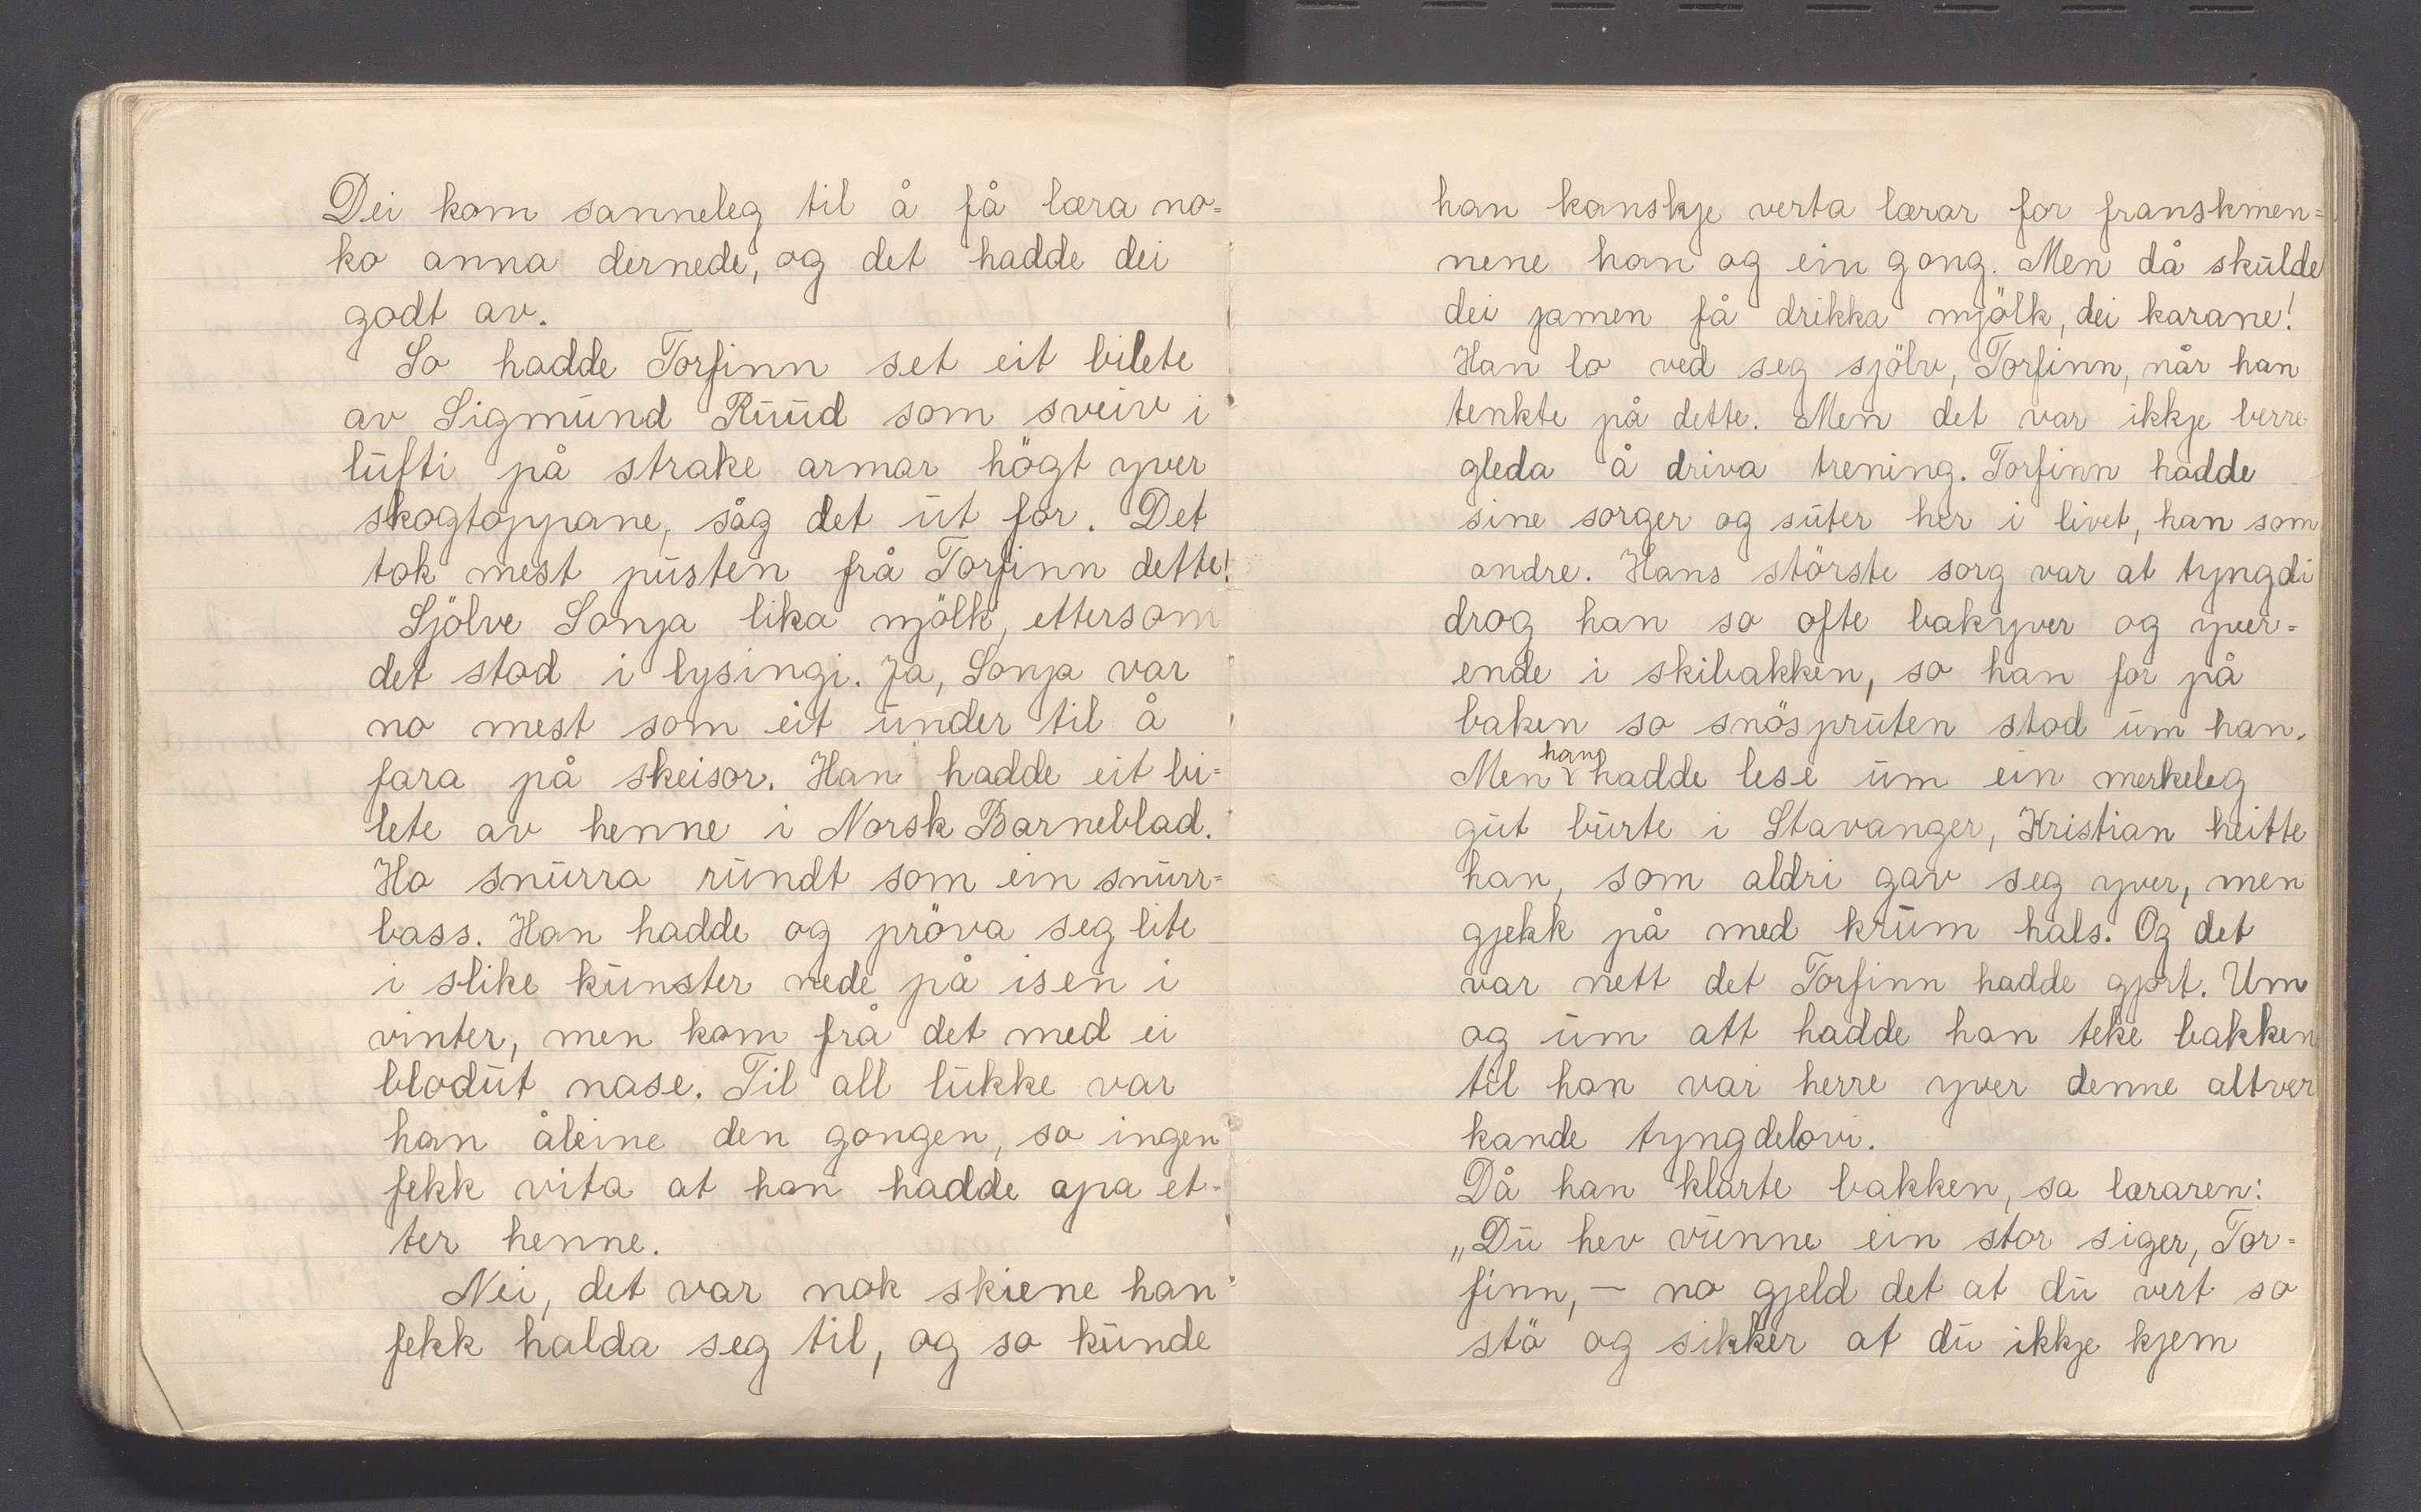 Dei kom sanneleg til å få læra no=
ko anna dernede, og det hadde dei
godt av.
So hadde Torfinn set eit bilete
av Sigmund Ruud som sveiv i
lufti på strake armar högt yver
skogtoppane, såg det ut for. Det
tok mest pusten frå Torfinn dette!
Sjölve Sonja lika mjölk, ettersom
det stod i lysingi. Ja, Sonja var
no mest som eit under til å
fara på skeisor. Han hadde eit bi=
lete av henne i Norsk Barneblad.
Ho snurra rundt som ein snurr=
bass. Han hadde og pröva seg lite
i slike kunster nede på isen i
vinter, men kom frå det med ei
blodut nase. Til all lukke var
han åleine den gongen, so ingen
fekk vita at han hadde apa et-
ter henne.
Nei, det var nok skiene han
fekk halda seg til, og so kunde
han kanskje verta lærar for franskmen=
nene han og ein gong. Men då skulde
dei jamen få drikka mjölk, dei karane!
Han lo ved seg sjölv, Torfinn, når han
tenkte på dette. Men det var ikkje berre
gleda å driva trening. Torfinn hadde
sine sorger og suter her i livet, han som
andre. Hans störste sorg var at tyngdi
drog han so ofte bakyver og yver=
ende i skibakken, so han for på
baken so snöspruten stod um han.
Men han hadde lese um ein merkeleg
gut burte i Stavanger, Kristian heitte
han, som aldri gav seg yver, men
gjekk på med krum hals. Og det
var nett det Torfinn hadde gjort. Um
og um att hadde han teke bakken
til han var herre yver denne altver
kande tyngdelovi.
Då han klarte bakken, sa læraren:
„Du hev vunne ein stor siger, Tor=
finn, – no gjeld det at du vert so
stö og sikker at du ikkje kjem